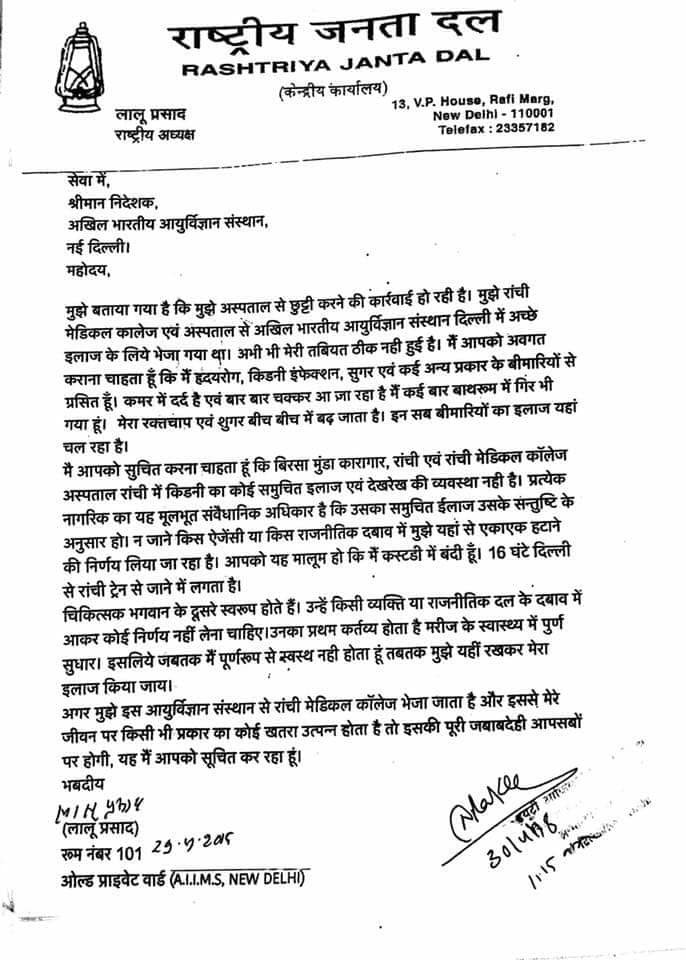 राष्ट्रीय जनता दल
RASHTRIYA JANTA DAL
(केन्द्रीय कार्यालय)
13, V.P. House, Rafi Marg,
New Delhi - 110001
Telefax : 23357182
लालू प्रसाद
राष्ट्रीय अध्यक्ष
सेवा में,
श्रीमान निदेशक,
अखिल भारतीय आयुर्विज्ञान संस्थान,
नई दिल्ली।
महोदय,
मुझे बताया गया है कि मुझे अस्पताल से छुट्टी करने की कार्रवाई हो रही है। मुझे रांची
मेडिकल कालेज एवं अस्पताल से अखिल भारतीय आयुर्विज्ञान संस्थान दिल्ली में अच्छे
इलाज के लिये भेजा गया था। अभी भी मेरी तबियत ठीक नही हुई है। मैं आपको अवगत
कराना चाहता हूँ कि मैं हृदयरोग, किडनी इंफेक्शन, सुगर एवं कई अन्य प्रकार के बीमारियों से
ग्रसित हूँ। कमर में दर्द है एवं बार बार चक्कर आ जा रहा है मैं कई बार बाथरूम में गिर भी
गया हूं। मेरा रक्तचाप एवं शुगर बीच बीच में बढ़ जाता है। इन सब बीमारियों का इलाज यहां
चल रहा है।
मै आपको सुचित करना चाहता हूं कि बिरसा मुंडा कारागार, रांची एवं रांची मेडिकल कॉलेज
अस्पताल रांची में किडनी का कोई समुचित इलाज एवं देखरेख की व्यवस्था नही है। प्रत्येक
नागरिक का यह मूलभूत संवैधानिक अधिकार है कि उसका समुचित ईलाज उसके सन्तुष्टि के
अनुसार हो। न जाने किस ऐजेंसी या किस राजनीतिक दबाव में मुझे यहां से एकाएक हटाने
की निर्णय लिया जा रहा है। आपको यह मालूम हो कि मैं कस्टडी में बंदी हूँ। 16 घंटे दिल्ली
से रांची ट्रेन से जाने में लगता है।
चिकित्सक भगवान के दूसरे स्वरूप होते हैं। उन्हें किसी व्यक्ति या राजनीतिक दल के दबाव में
आकर कोई निर्णय नहीं लेना चाहिए।उनका प्रथम कर्तव्य होता है मरीज के स्वास्थ्य में पुर्ण
सुधार। इसलिये जबतक मैं पूर्णरूप से स्वस्थ नही होता हूं तबतक मुझे यहीं रखकर मेरा
इलाज किया जाय।
अगर मुझे इस आयुर्विज्ञान संस्थान से रांची मेडिकल कॉलेज भेजा जाता है और इससे मेरे
जीवन पर किसी भी प्रकार का कोई खतरा उत्पन्न होता है तो इसकी पूरी जबाबदेही आपसबों
पर होगी, यह मैं आपको सूचित कर रहा हूं।
भबदीय
(लालू प्रसाद)
रूम नंबर 101
ओल्ड प्राइवेट वार्ड (A.I.I.M.S, NEW DELHI)
30/4/18